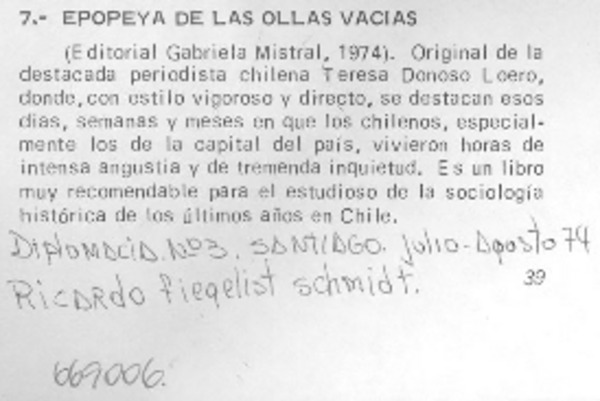 7.- EPOPEYA DE LAS OLLAS VACIAS
(Editorial Gabriela Mistral, 1974). Original de la
destacada periodista chilena Teresa Donoso Loero,
donde, con estilo vigoroso y directo, se destacan esos
días, semanas y meses en que los chilenos, especial-
mente los de la capital del país, vivieron horas de
intensa angustia y de tremenda inquietud. Es un libro
muy recomendable para el estudioso de la sociología
histórica de los últimos años en Chile.
Diplomacia. Nº3. SANTIAGO. julio-Agosto 74
Ricardo Piegelist Schmidt.
39
669006.